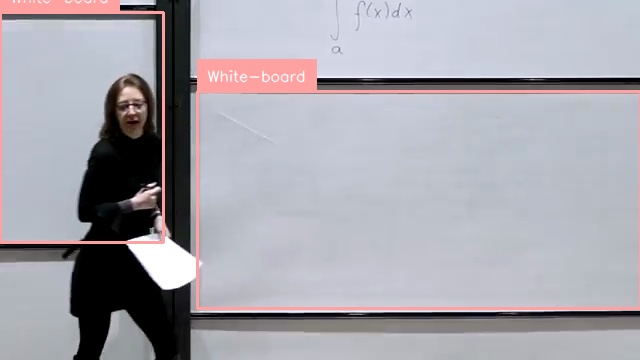 White-board
∫ f(x)dx
a
White-board